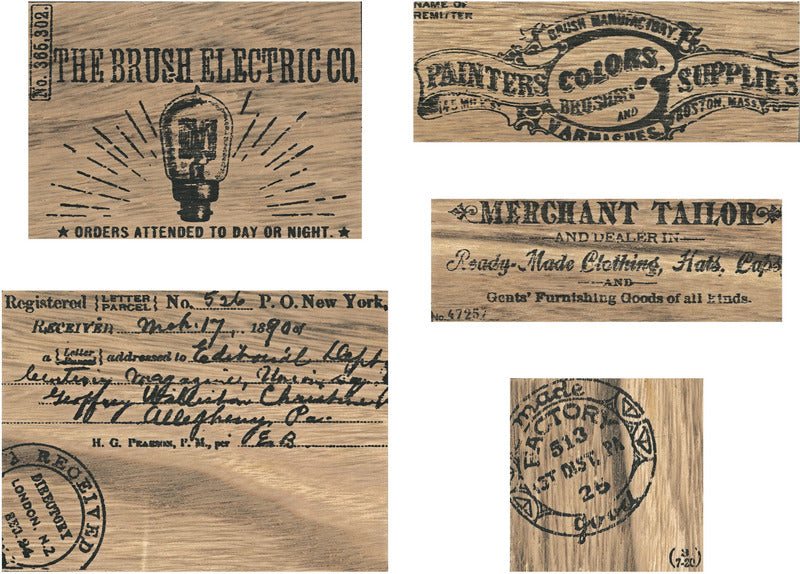 No. 365,302.
THE BRUSH ELECTRIC CO.
★ ORDERS ATTENDED TO DAY OR NIGHT. ★
NAME OF
REMITTER
BRUSH MANUFACTORY
PAINTERS COLORS, SUPPLIES
BRUSHES
AND
VARNISHES
BOSTON, MASS.
MERCHANT TAILOR
AND DEALER IN
Ready-Made Clothing, Hats, Caps,
AND
Gents' Furnishing Goods of all kinds.
No. 47257
Registered {LETTER PARCEL} No. 526 P. O. New York,
RECEIVED Mch. 17, 1890 of
a {Letter Parcel} addressed to Editorial Dept
Century Magazine, Union Sq.
Geoffrey Williston Christine
Allegheny, Pa.
H. G. PEARSON, P. M., per E B
RECEIVED
DIRECTORY
LONDON, N.Z
made
FACTORY
513
1ST DIST. PA
25
good
(3
7-20)